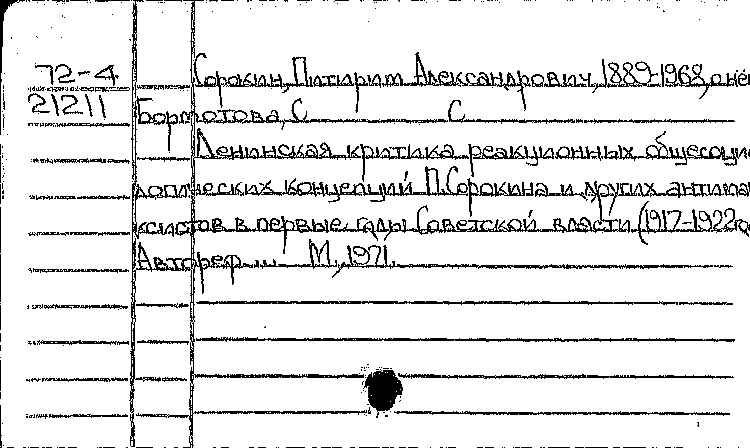 72-4 Сорокин, Питирим Александрович, 1889-1968, о нём
21211 С С
Ленинская критика реакционных общесоцио
логических концепций П.Сорокина и других антима
ксистов в первые годы Советской власти (1917-1922
Автореф... М., 1971.